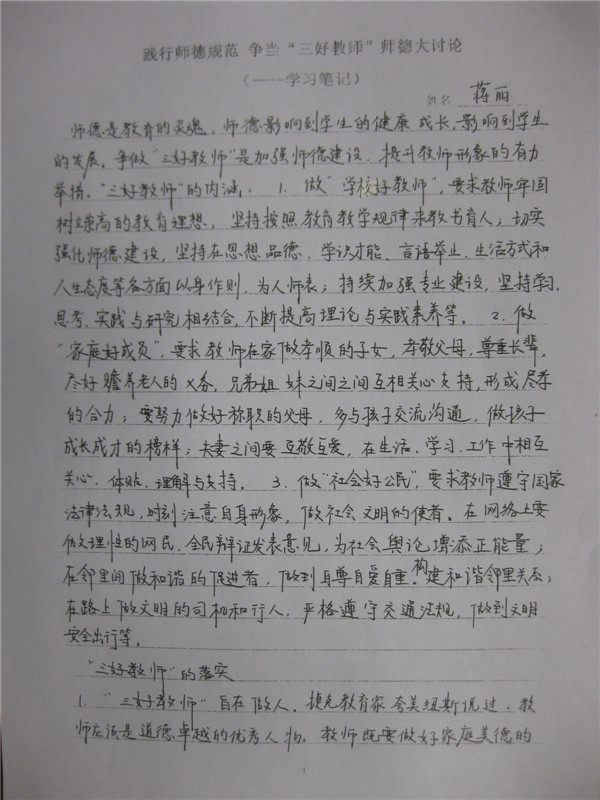 践行师德规范 争当“三好教师”师德大讨论
（——学习笔记）
姓名 蒋丽
师德是教育的灵魂，师德影响到学生的健康成长，影响到学生
的发展。争做“三好教师”是加强师德建设、提升教师形象的有力
举措。“三好教师”的内涵：1. 做“学校好教师”，要求教师牢固
树立崇高的教育理想，坚持按照教育教学规律来教书育人；切实
强化师德建设，坚持在思想品德、学识才能、言语举止、生活方式和
人生态度等各方面以身作则，为人师表；持续加强专业建设，坚持学习、
思考、实践与研究相结合，不断提高理论与实践素养等。 2. 做
“家庭好成员”，要求教师在家做孝顺的子女，孝敬父母，尊重长辈，
尽好赡养老人的义务，兄弟姐妹之间之间互相关心支持，形成尽孝
的合力；要努力做好称职的父母，多与孩子交流沟通，做孩子
成长成才的榜样；夫妻之间要互敬互爱，在生活、学习、工作中相互
关心、体贴、理解与支持。 3. 做“社会好公民”，要求教师遵守国家
法律法规，时刻注意自身形象，做社会文明的使者。在网络上要
做理性的网民，全民辩证发表意见，为社会舆论增添正能量；
在邻里间做和谐的促进者，做到自尊自爱自重，构建和谐邻里关系；
在路上做文明的司机和行人，严格遵守交通法规，做到文明
安全出行等。
“三好教师”的落实
1. “三好教师”旨在做人。捷克教育家夸美纽斯说过：教
师应该是道德卓越的优秀人物。教师既要做好家庭美德的